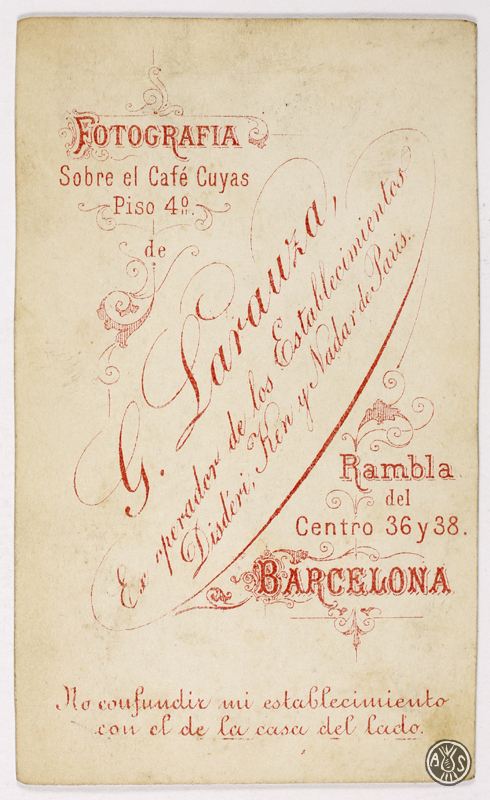 FOTOGRAFIA
Sobre el Café Cuyas
Piso 4º.
de
G. Larauza,
Ex operador de los Establecimientos
Disdéri, Ken y Nadar de Paris.
Rambla
del
Centro 36 y 38.
BARCELONA
No confundir mi establecimiento
con el de la casa del lado.
AS